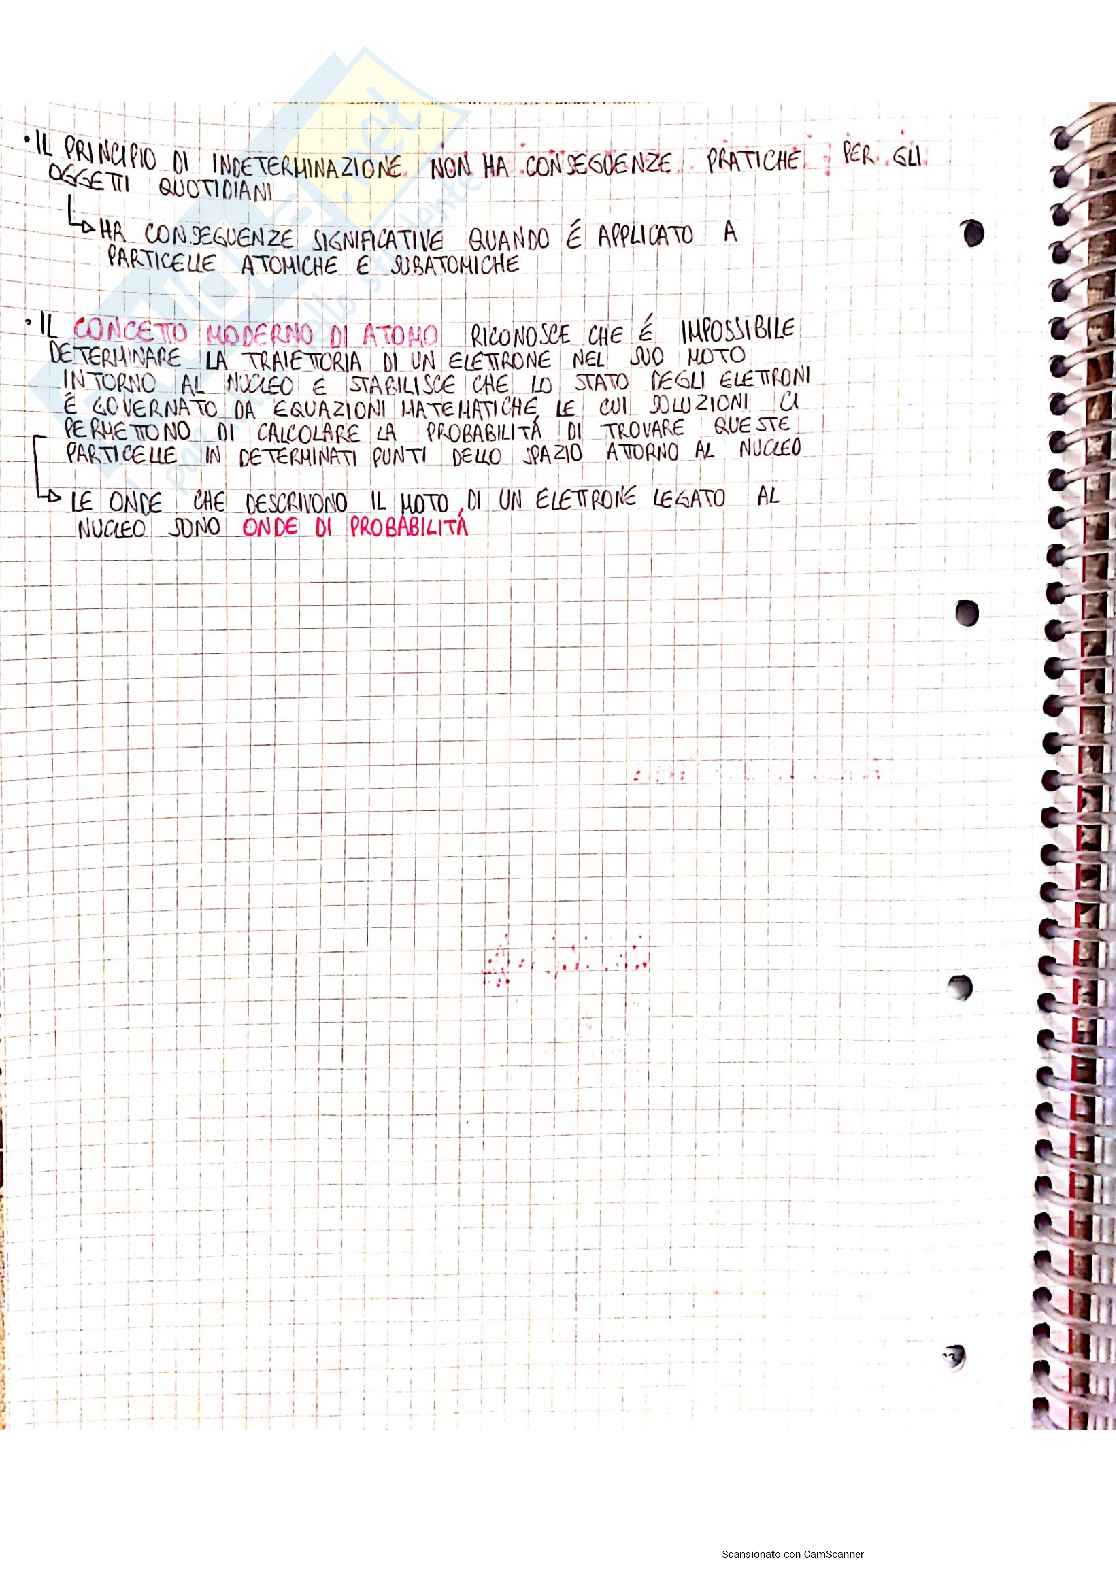 • IL PRINCIPIO DI INDETERMINAZIONE NON HA CONSEGUENZE PRATICHE PER GLI
OGGETTI QUOTIDIANI
HA CONSEGUENZE SIGNIFICATIVE QUANDO É APPLICATO A
PARTICELLE ATOMICHE E SUBATOMICHE
• IL CONCETTO MODERNO DI ATOMO RICONOSCE CHE É IMPOSSIBILE
DETERMINARE LA TRAIETTORIA DI UN ELETTRONE NEL SUO MOTO
INTORNO AL NUCLEO E STABILISCE CHE LO STATO DEGLI ELETTRONI
É GOVERNATO DA EQUAZIONI MATEMATICHE, LE CUI SOLUZIONI CI
PERMETTONO DI CALCOLARE LA PROBABILITÁ DI TROVARE QUESTE
PARTICELLE IN DETERMINATI PUNTI DELLO SPAZIO ATTORNO AL NUCLEO
LE ONDE CHE DESCRIVONO IL MOTO DI UN ELETTRONE LEGATO AL
NUCLEO SONO ONDE DI PROBABILITÁ
Scansionato con CamScanner